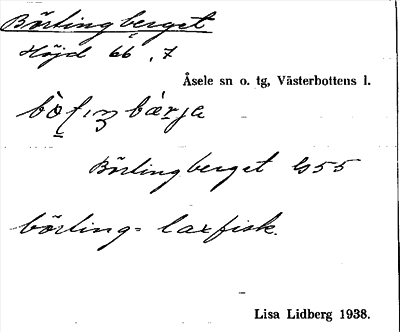 Börtingberget
Höjd 66,7
Åsele sn o. tg, Västerbottens l.
Börtingberget Gs 55
börting = laxfisk.
Lisa Lidberg 1938.